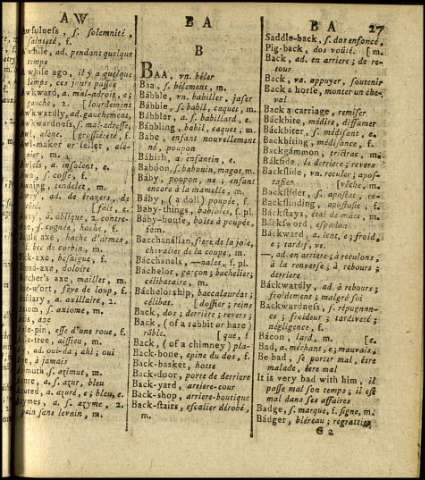 A W
B A
B A
27
wfulness, s. solemnité,
sainteté, f.
while, ad. pendant quelque
temps
while ago, il y a quelque
temps, ces jours passés
wkward, a. mal-adroit, e;
gauche, 2. [lourdement
wkwardly, ad. gauchement,
wkwardness, s. mal-adresse,
[grossiéreté, f.
m.
insolent, e.
s. cosse, f.
ning, tendelet, m.
ad. de travers, de
[sale, e.
a. oblique, 2. contre-
s. cognée, hache, f.
axe, hache d'armes,
bec de corbin, m.
k-axe, besaiguë, f.
ad-axe, doloire
axe, mailler, m.
f.
axillaire, 2.
s. axiome, m.
esse d'une roue, f.
aissieu, m.
ad. oui-da; ah! oui
à jamais
muth, s. azimut, m.
a. s. azur, bleu
ured, a. azuré, e; bleu, e.
a. s. azyme, 2.
pain sans levain, m.
B
BAA, vn. bêler
Baa, s. bêlement, m.
Bábble, vn. babiller, jaser
Bábble, s. babil, caquet, m.
Bábbler, a. s. babillard, e.
Bábbling, babil, caquet, m.
Babe, enfant nouvellement
né, poupon
Bábish, a. enfantin, e.
Baboón, s. babouin, magot, m.
Báby, poupon, ne; enfant
encore à la mamelle, m.
Báby, (a doll) poupée, f.
Báby-things, babioles, f. pl.
Báby-house, boite à poupée,
f.
Bacchanálian, s. ege de la joie,
chevalier de la coupe, m.
Bácchanals, —nales, f. pl.
Báchelor, garçon; bachelier;
célibataire, m.
Báchelorship, baccalauréat;
célibat. [dossier; reins
Back, dos; derriere; revers;
Back, (of a rabbit or hare)
râble. [que, f.
Back, (of a chimney) pla-
Back-bone, épine du dos, f.
Back-basket, hotte
Back-door, porte de derriere
Back-yard, arriere-cour
Back-shop, arriere-boutique
Back-stairs, escalier dérobé,
m.
Saddle-back, s. dos enfoncé,
Pig-back, dos voûté. [m.
Back, ad. en arriere; de re-
tour
Back, va. appuyer, soutenir
Back a horse, monter un che-
val
Back a carriage, remiser
Báckbite, médire, diffamer
Báckbiter, s. médisant, e.
Backbiting, médisance, f.
Backgámmon, trictrac, m.
Báckside, le derriere; revers
Backslíde, vn. reculer; apos-
tasier. [vêche, m.
Backslíder, s. apostat, re-
Backslíding, apostasie, f.
Báckstays, étai de mâts, m.
Báckward, a. lent, e; froid,
e; tardif, ve.
—, ad. en arriere; à reculons;
à la renverse; à rebours;
derriere
Báckwardly, ad. à rebours;
froidement; malgré soi
Báckwardness, s. répugnan-
ce; froideur; tardiveté;
négligence, f.
Bácon, lard, m. [e.
Bad, a. méchant, e; mauvais,
Be bad, se porter mal, être
malade, être mal
It is very bad with him, il
passe mal son temps; il est
mal dans ses affaires
Badge, s. marque, f. signe, m.
Bádger, blaireau; regrattier,
G 2